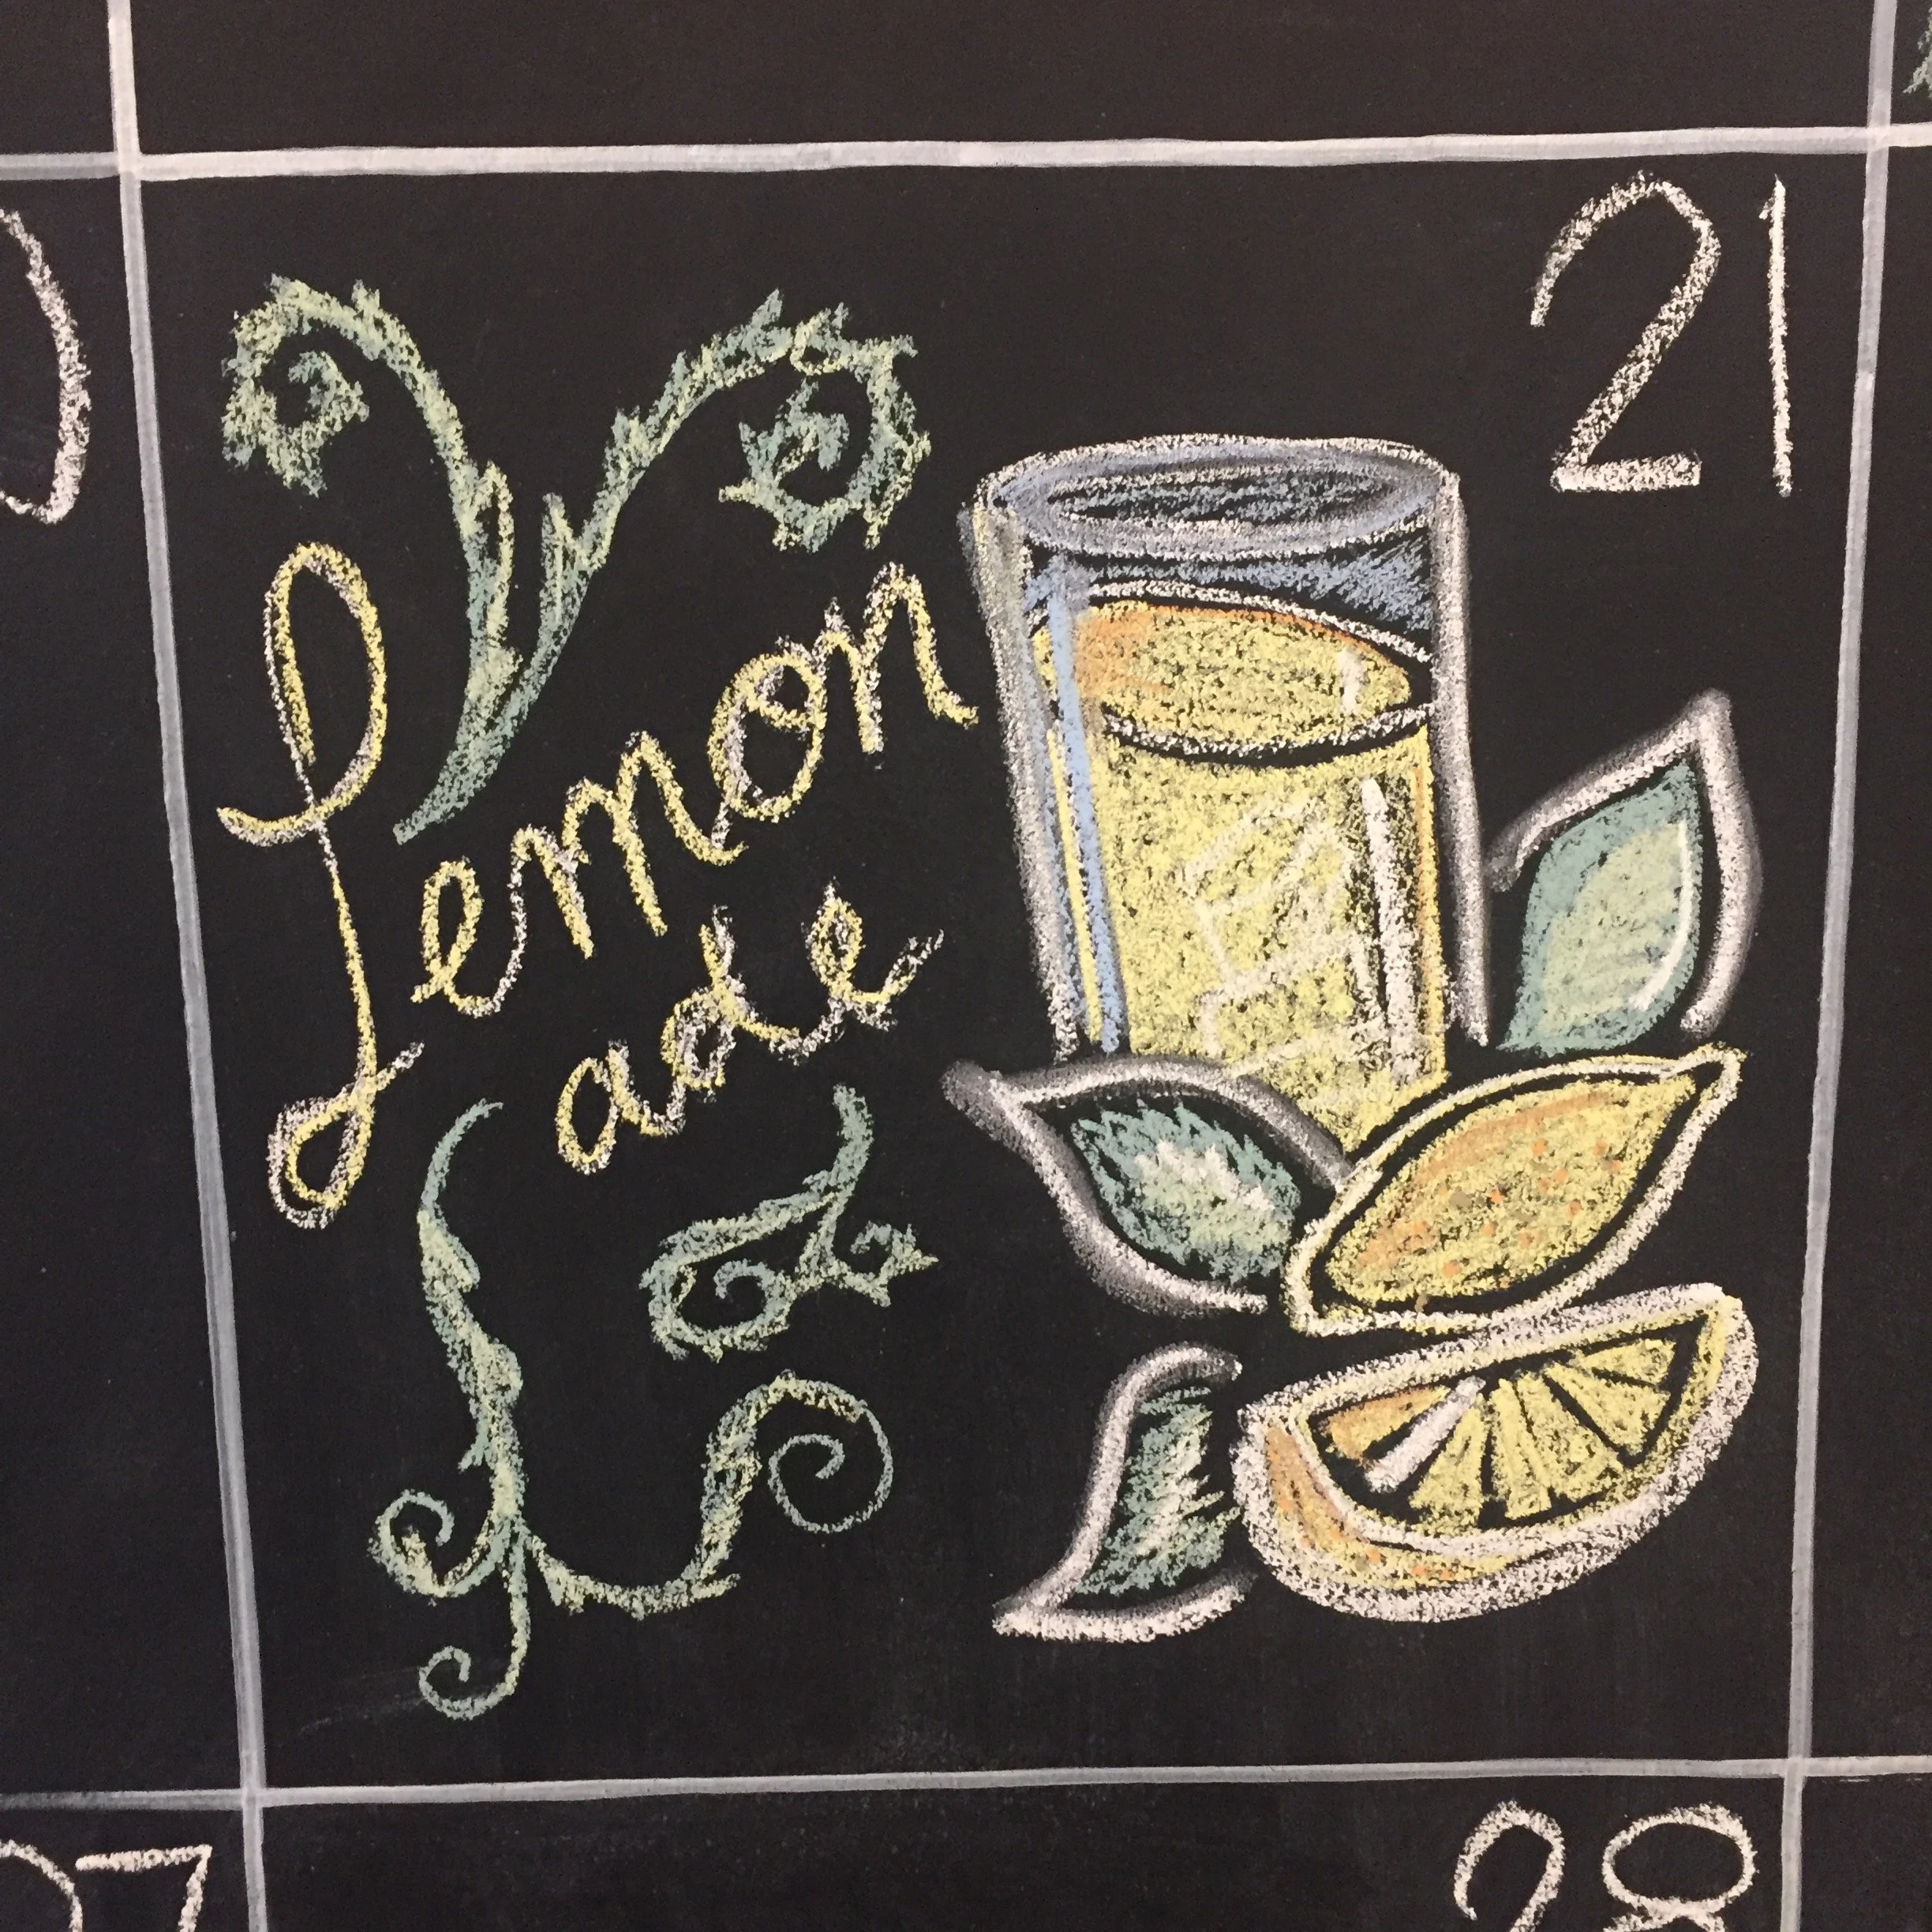 21
Lemon
ade
28